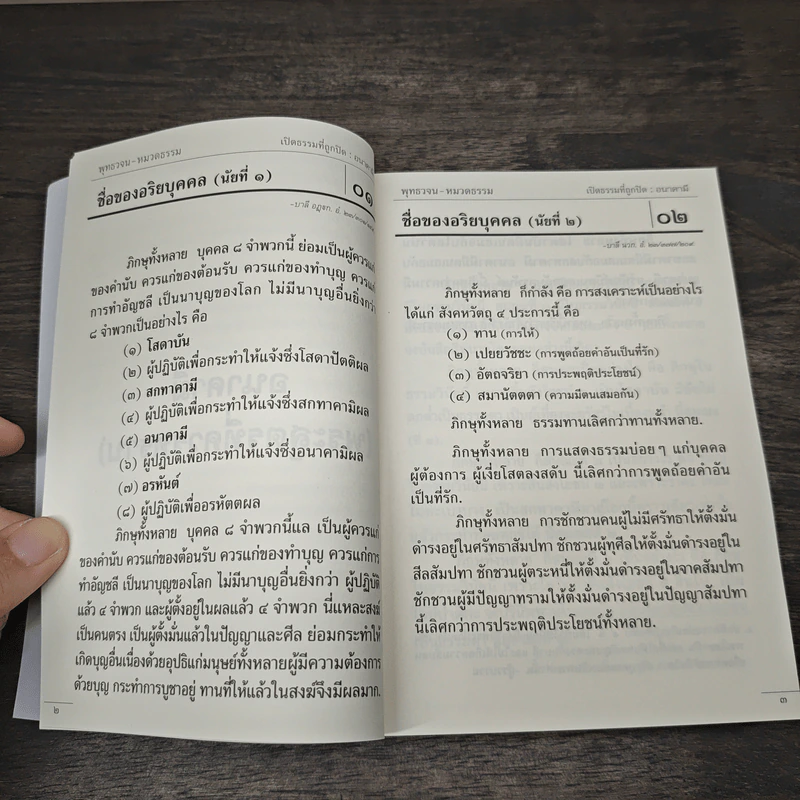 พุทธวจน-หมวดธรรม
เปิดธรรมที่ถูกปิด : อนาคามี
ชื่อของอริยบุคคล (นัยที่ ๑)
๐๑
-บาลี อฏฺฐก. อํ.
ภิกษุทั้งหลาย บุคคล ๘ จำพวกนี้ ย่อมเป็นผู้ควรแก่
ของคำนับ ควรแก่ของต้อนรับ ควรแก่ของทำบุญ ควรแก่
การทำอัญชลี เป็นนาบุญของโลก ไม่มีนาบุญอื่นยิ่งกว่า
๘ จำพวกเป็นอย่างไร คือ
(๑) โสดาบัน
(๒) ผู้ปฏิบัติเพื่อกระทำให้แจ้งซึ่งโสดาปัตติผล
(๓) สกทาคามี
(๔) ผู้ปฏิบัติเพื่อกระทำให้แจ้งซึ่งสกทาคามิผล
(๕) อนาคามี
(๖) ผู้ปฏิบัติเพื่อกระทำให้แจ้งซึ่งอนาคามิผล
(๗) อรหันต์
(๘) ผู้ปฏิบัติเพื่ออรหัตตผล
ภิกษุทั้งหลาย บุคคล ๘ จำพวกนี้แล เป็นผู้ควรแก่
ของคำนับ ควรแก่ของต้อนรับ ควรแก่ของทำบุญ ควรแก่การ
ทำอัญชลี เป็นนาบุญของโลก ไม่มีนาบุญอื่นยิ่งกว่า ผู้ปฏิบัติ
แล้ว ๔ จำพวก และผู้ตั้งอยู่ในผลแล้ว ๔ จำพวก นี่แหละสงฆ์
เป็นคนตรง เป็นผู้ตั้งมั่นแล้วในปัญญาและศีล ย่อมกระทำให้
เกิดบุญอื่นเนื่องด้วยอุปธิแก่มนุษย์ทั้งหลายผู้มีความต้องการ
ด้วยบุญ กระทำการบูชาอยู่ ทานที่ให้แล้วในสงฆ์จึงมีผลมาก.
๒
พุทธวจน-หมวดธรรม
เปิดธรรมที่ถูกปิด : อนาคามี
ชื่อของอริยบุคคล (นัยที่ ๒)
๐๒
-บาลี นวก. อํ.
ภิกษุทั้งหลาย ก็กำลัง คือ การสงเคราะห์เป็นอย่างไร
ได้แก่ สังคหวัตถุ ๔ ประการนี้ คือ
(๑) ทาน (การให้)
(๒) เปยยวัชชะ (การพูดถ้อยคำอันเป็นที่รัก)
(๓) อัตถจริยา (การประพฤติประโยชน์)
(๔) สมานัตตตา (ความมีตนเสมอกัน)
ภิกษุทั้งหลาย ธรรมทานเลิศกว่าทานทั้งหลาย.
ภิกษุทั้งหลาย การแสดงธรรมบ่อยๆ แก่บุคคล
ผู้ต้องการ ผู้เงี่ยโสตลงสดับ นี้เลิศกว่าการพูดถ้อยคำอัน
เป็นที่รัก.
ภิกษุทั้งหลาย การชักชวนคนผู้ไม่มีศรัทธาให้ตั้งมั่น
ดำรงอยู่ในศรัทธาสัมปทา ชักชวนผู้ทุศีลให้ตั้งมั่นดำรงอยู่ใน
สีลสัมปทา ชักชวนผู้ตระหนี่ให้ตั้งมั่นดำรงอยู่ในจาคสัมปทา
ชักชวนผู้มีปัญญาทรามให้ตั้งมั่นดำรงอยู่ในปัญญาสัมปทา
นี้เลิศกว่าการประพฤติประโยชน์ทั้งหลาย.
๓